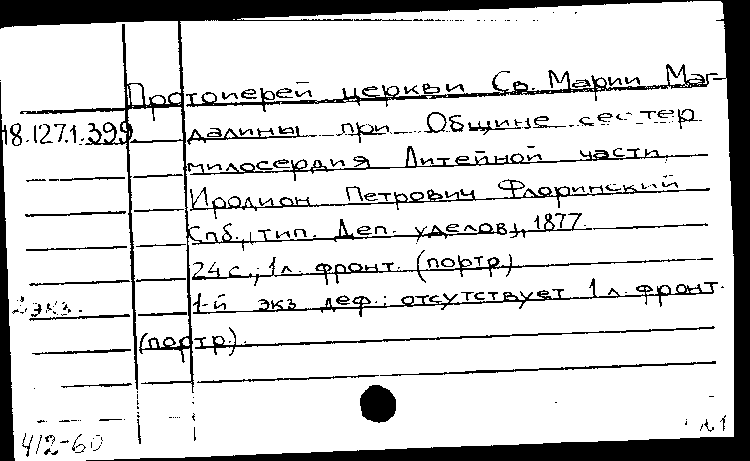 Протоиерей церкви Св. Марии Маг-
18.127.1.399. далины при Общине сестер
милосердия Литейной части,
Иродион Петрович Флоринский
Спб., тип. Деп. уделов, 1877.
24 с., 1 л. фронт. (портр)
2 экз. 1-й экз деф.: отсутствует 1 л. фронт.
(портр).
412-60
л 1